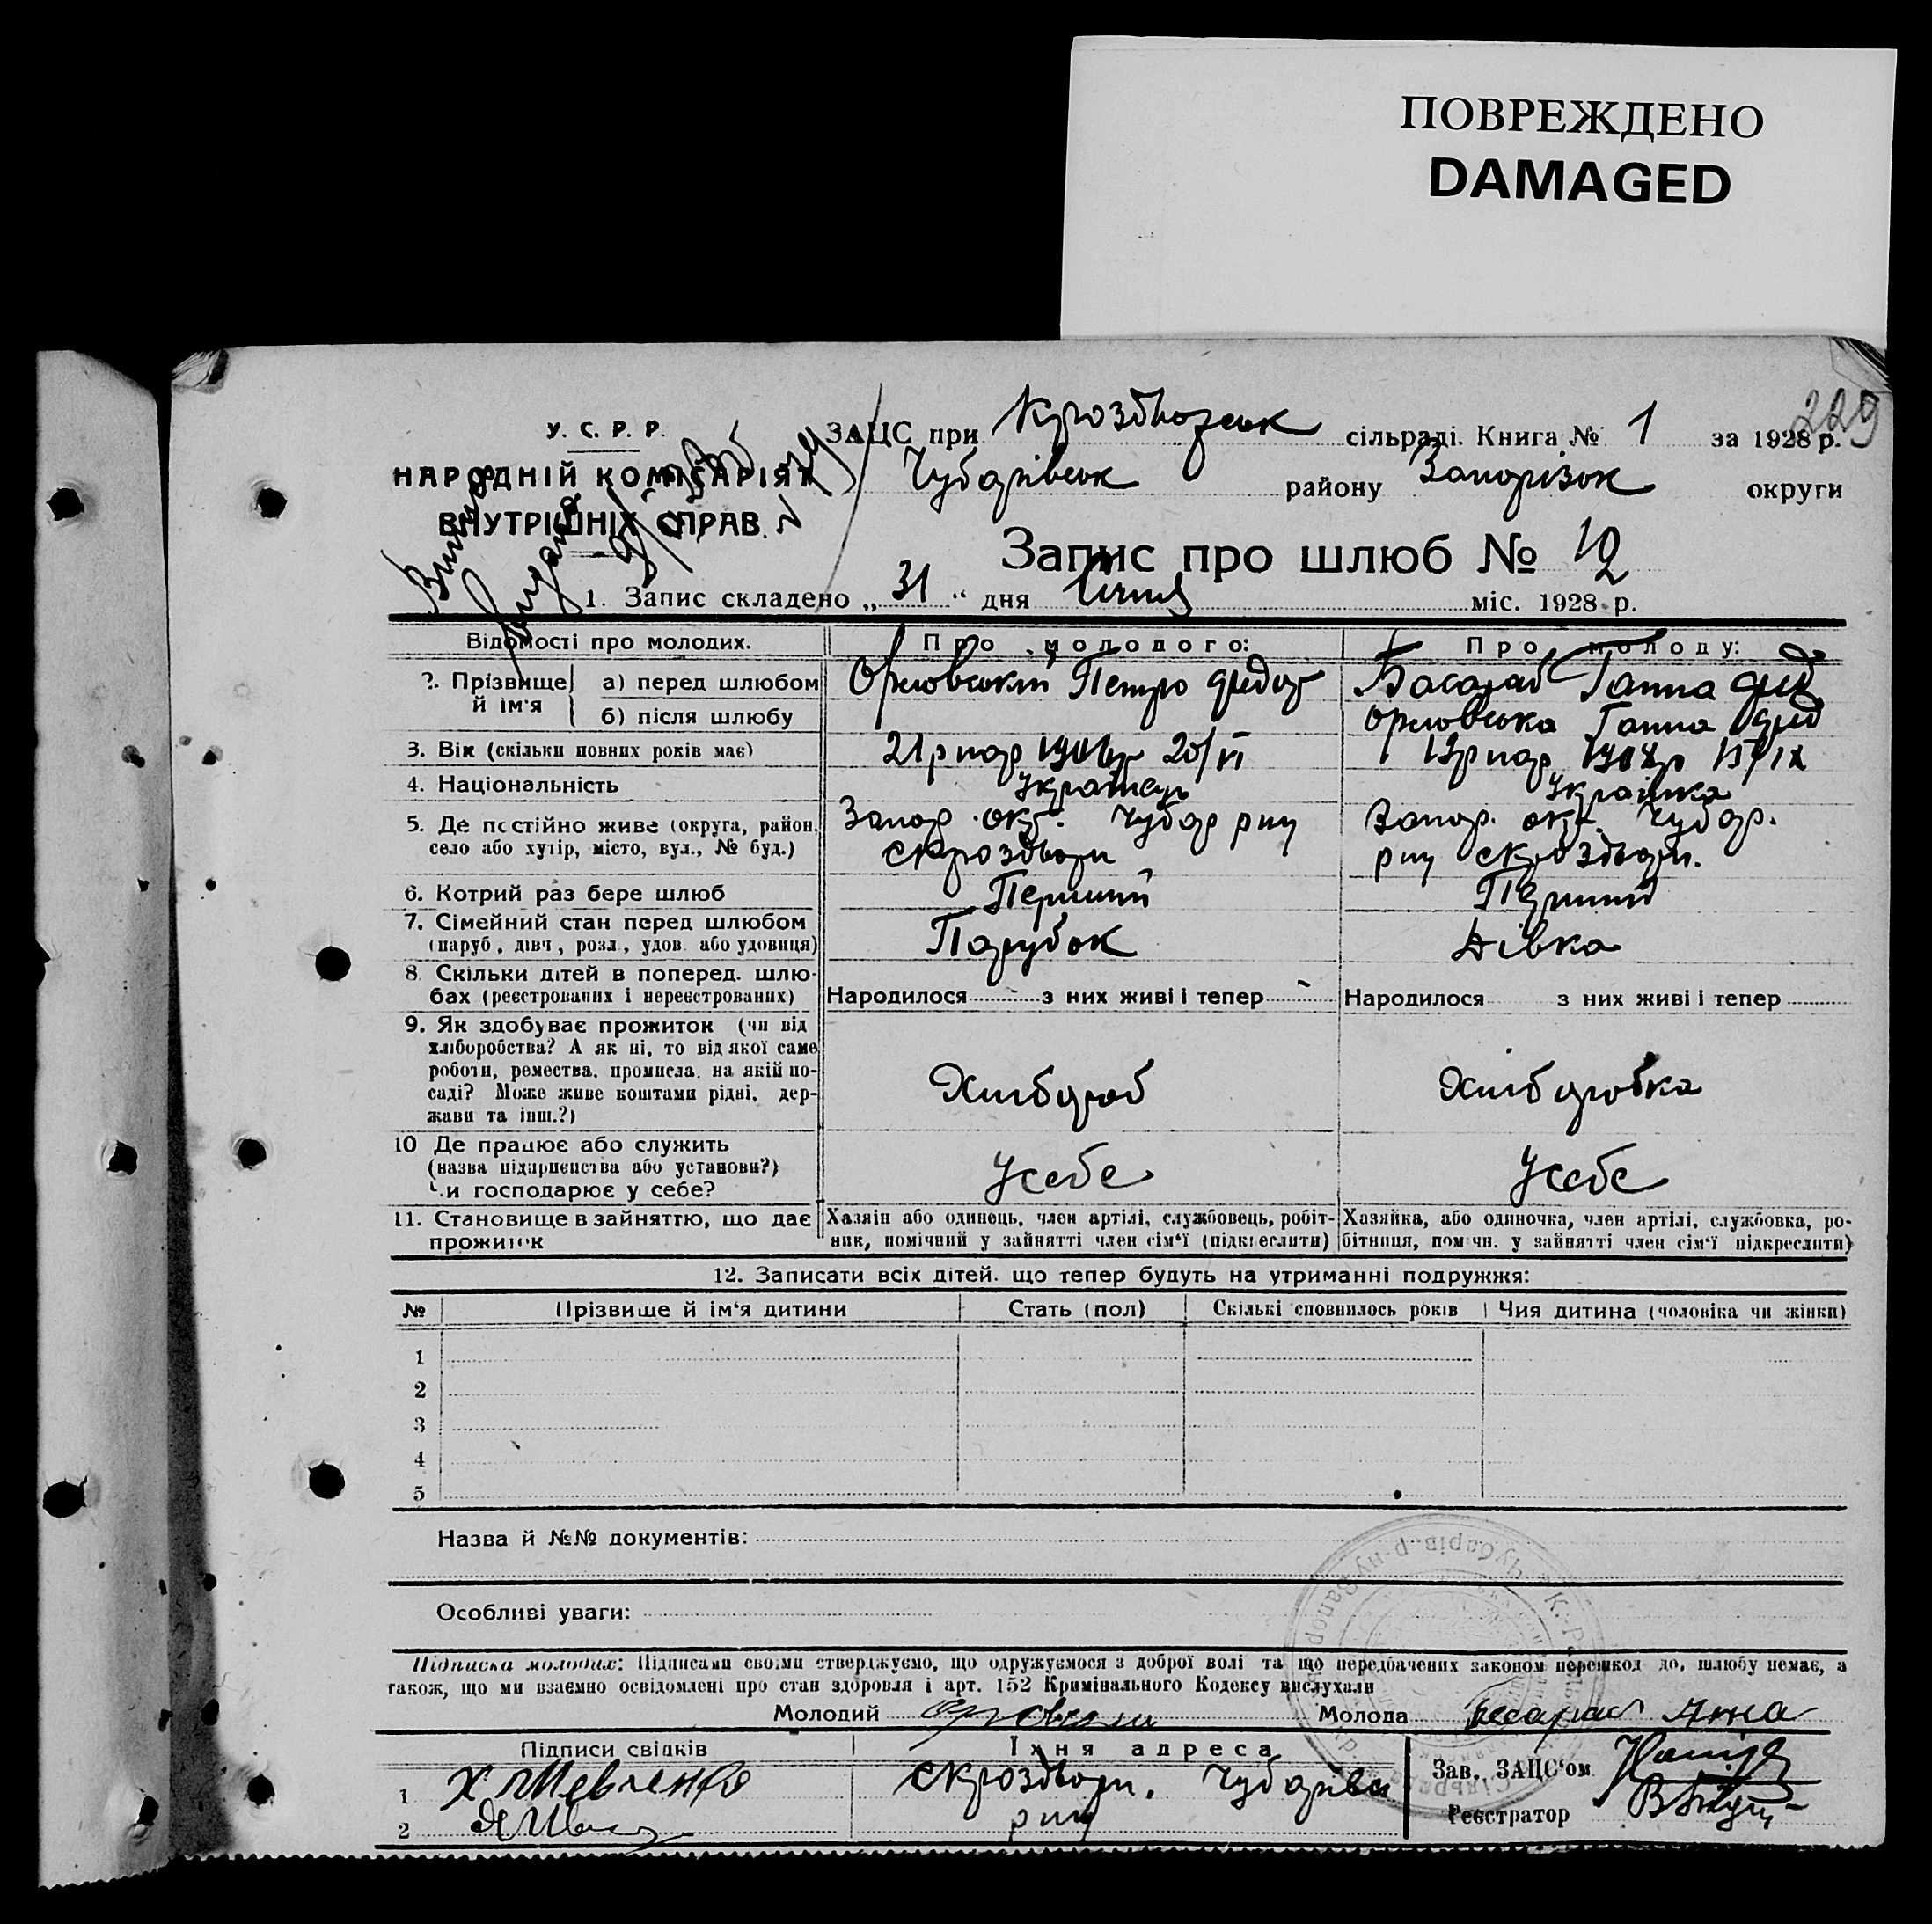 ПОВРЕЖДЕНО
DAMAGED
229
У. С. Р. Р.
НАРОДНІЙ КОМІСАРІЯТ
ВНУТРІШНІХ СПРАВ.
ЗАЦС при сільраді. Книга № 1 за 1928 р.
Чубарівськ району Запорізьк округи
Запис про шлюб № 12
1. Запис складено „ 31 “ дня Січня міс. 1928 р.
Відомості про молодих. Про молодого: Про молоду:
2. Прізвище й ім'я а) перед шлюбом Орловський Петро Федор Басараб Ганна Фед
б) після шлюбу Орловська Ганна Фед
3. Вік (скільки повних років має) 21 р нар 20/VI
4. Національність Українець Українка
5. Де постійно живе (округа, район, Запор. окр. Чубар р ну Запор. окр. Чубар.
село або хутір, місто, вул., № буд.)
6. Котрий раз бере шлюб Перший Перший
7. Сімейний стан перед шлюбом Парубок Дівка
(паруб., дівч., розл., удов. або удовиця)
8. Скільки дітей в поперед. шлю-
бах (реєстрованих і нереєстрованих) Народилося з них живі і тепер Народилося з них живі і тепер
9. Як здобуває прожиток (чи від
хліборобства? А як ні, то від якої саме
роботи, ремества, промисла, на якій по-
саді? Може живе коштами рідні, дер-
жави та інш.?) Хлібороб Хліборобка
10 Де працює або служить
(назва підприємства або установи?)
Чи господарює у себе? У себе У себе
11. Становище в зайняттю, що дає Хазяїн або одинець, член артілі, службовець, робіт- Хазяйка, або одиночка, член артілі, службовка, ро-
прожиток ник, помічний у зайнятті член сім'ї (підкреслити) бітниця, помічн. у зайнятті член сім'ї підкреслити)
12. Записати всіх дітей, що тепер будуть на утриманні подружжя:
№ Прізвище й ім'я дитини Стать (пол) Скількі сповнилось років Чия дитина (чоловіка чи жінки)
1
2
3
4
5
Назва й №№ документів:
Особливі уваги:
Підписка молодих: Підписами своїми стверджуємо, що одружуємося з доброї волі та що передбачених законом перешкод до, шлюбу немає, а
також, що ми взаємно освідомлені про стан здоровля і арт. 152 Кримінального Кодексу вислухали
Молодий Молода Басараб Анна
Підписи свідків Їхня адреса
1 Х Шевченко Зав. ЗАЦС'ом
2 Реєстратор